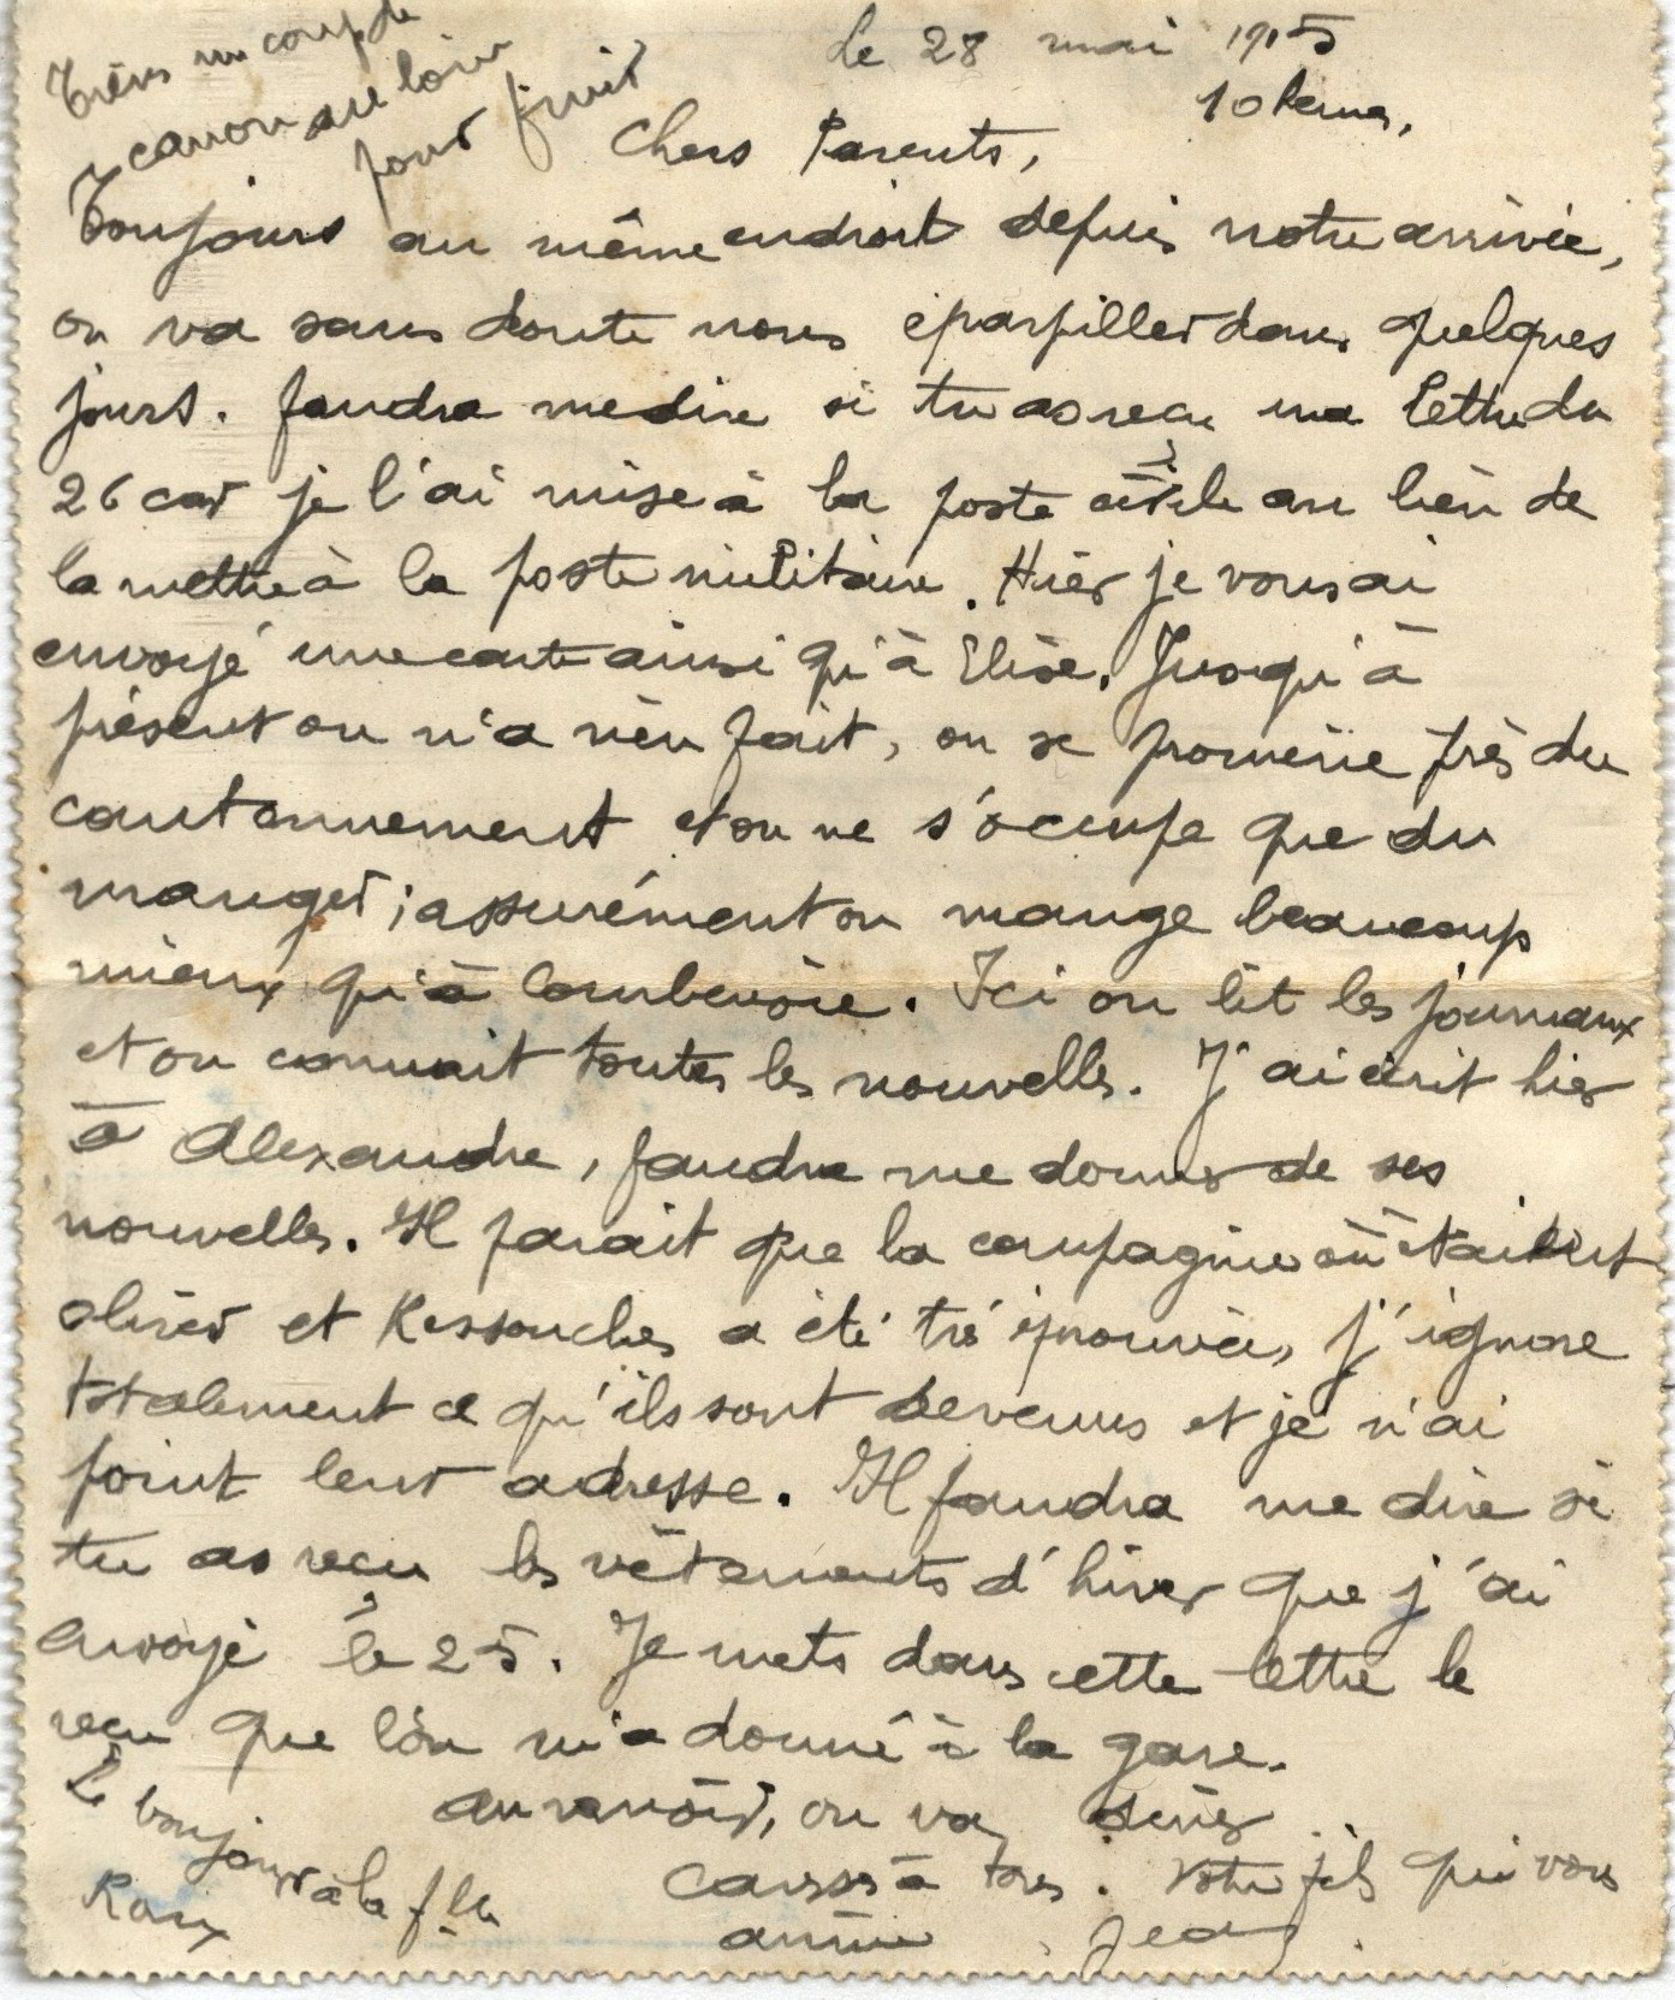 Le 28 mai 1915
10 heures,
Tiens un coup de
canon au loin
pour finir
Chers Parents,
Toujours au même endroit depuis notre arrivée,
on va sans doute nous éparpiller dans quelques
jours. faudra me dire si tu as reçu ma lettre du
26 car je l'ai mise à la poste civile au lieu de
la mettre à la poste militaire. Hier je vous ai
envoyé une carte ainsi qu'à Elise. Jusqu'à
présent on n'a rien fait, on se promène près du
cantonnement et on ne s'occupe que du
manger ; assurément on mange beaucoup
mieux qu'à Courbevoie. Ici on lit les journaux
et on connait toutes les nouvelles. J'ai écrit hier
à Alexandre, faudra me donner de ses
nouvelles. Il parait que la compagnie où étaient
et Ressouches a été très éprouvée, j'ignore
totalement ce qu'ils sont devenus et je n'ai
point leur adresse. Il faudra me dire si
tu as reçu les vêtements d'hiver que j'ai
envoyé le 25. Je mets dans cette lettre le
reçu que l'on m'a donné à la gare.
au revoir, on va diner
Caresses à tous. Votre fils qui vous
aime Jean
Le bonjour à la flle
Roux